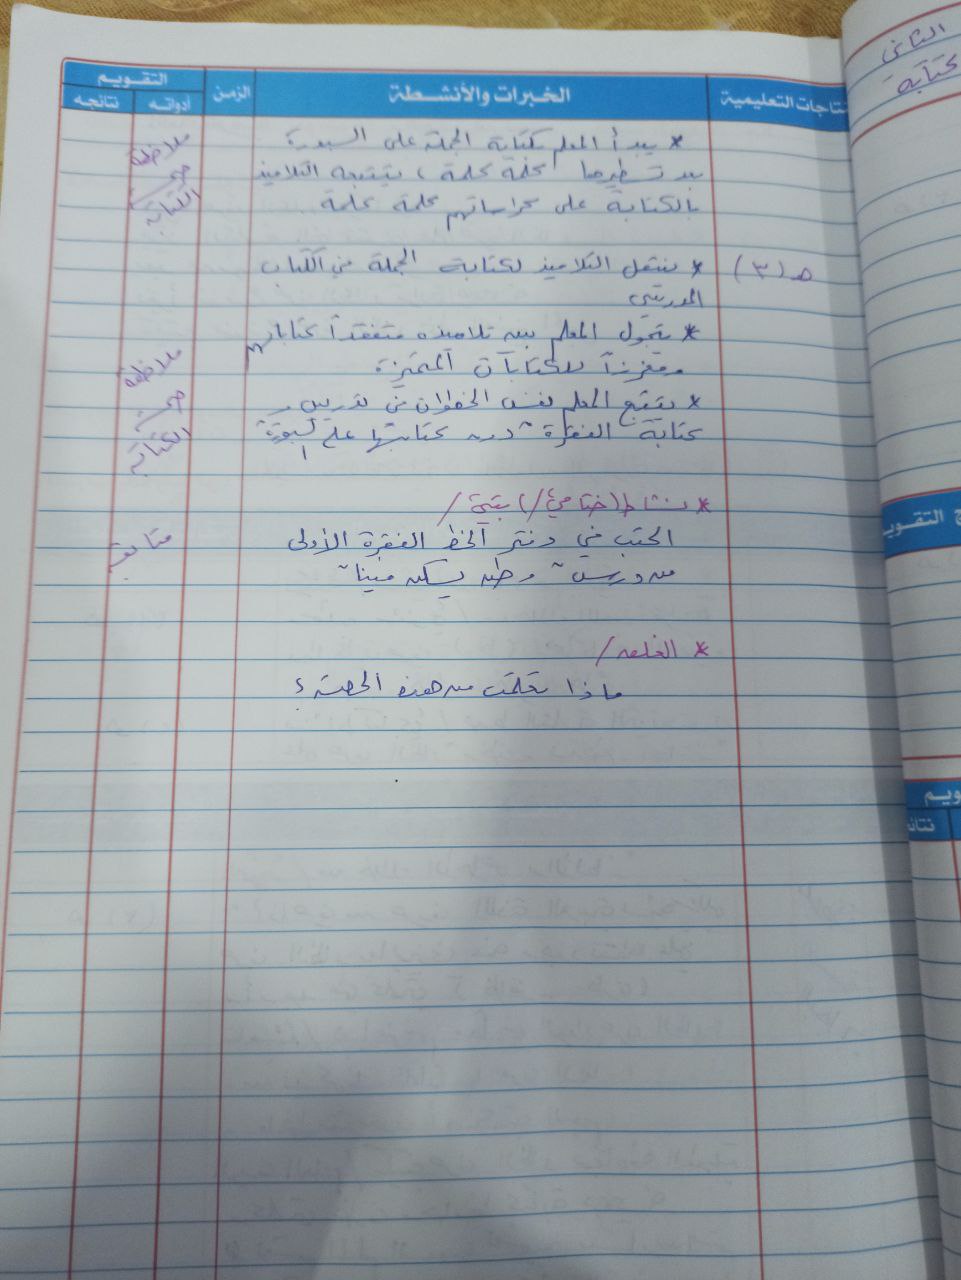 الثاني
كتابة
نتاجات التعليمية
الخبرات والأنشطة
الزمن
التقويم
أدواته
نتائجه
* يبدأ المعلم بكتابة الجملة على السبورة
بعد تسطيرها كلمة كلمة، يتبعه التلاميذ
بالكتابة على كراساتهم كلمة كلمة
ملاحظة
صحة
الكتابة
هـ (٣)
* ينتقل التلاميذ لكتابة الجملة من الكتاب
المدرسي
* يتجول المعلم بين تلاميذه متفقداً كتاباتهم
ومعززاً للكتابات المتميزة
ملاحظة
* يتبع المعلم نفس الخطوات في تدريس
كتابة الفقرة " دون كتابتها على السبورة"
صحة
الكتابة
* نشاط (ختامي/) بيتي/
اكتب في دفتر الخط الفقرة الأولى
من درس " وطن يسكن فينا"
متابعة
* الغلق/
ماذا تعلمت من هذه الحصة؟
ج التقويم
ويم
نتائج